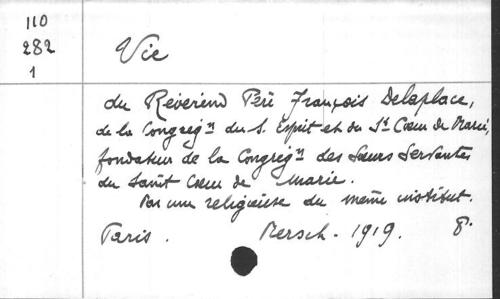 110
282
1
Vie
du Révérend Père François Delaplace,
de la Congrég<sup>n</sup> du S. Esprit et du S<sup>t</sup> Cœur de Marie,
fondateur de la Congrég<sup>n</sup> des Sœurs Servantes
du Saint Cœur de Marie.
Par une religieuse du même institut.
Paris. Mersch. 1919. 8°.